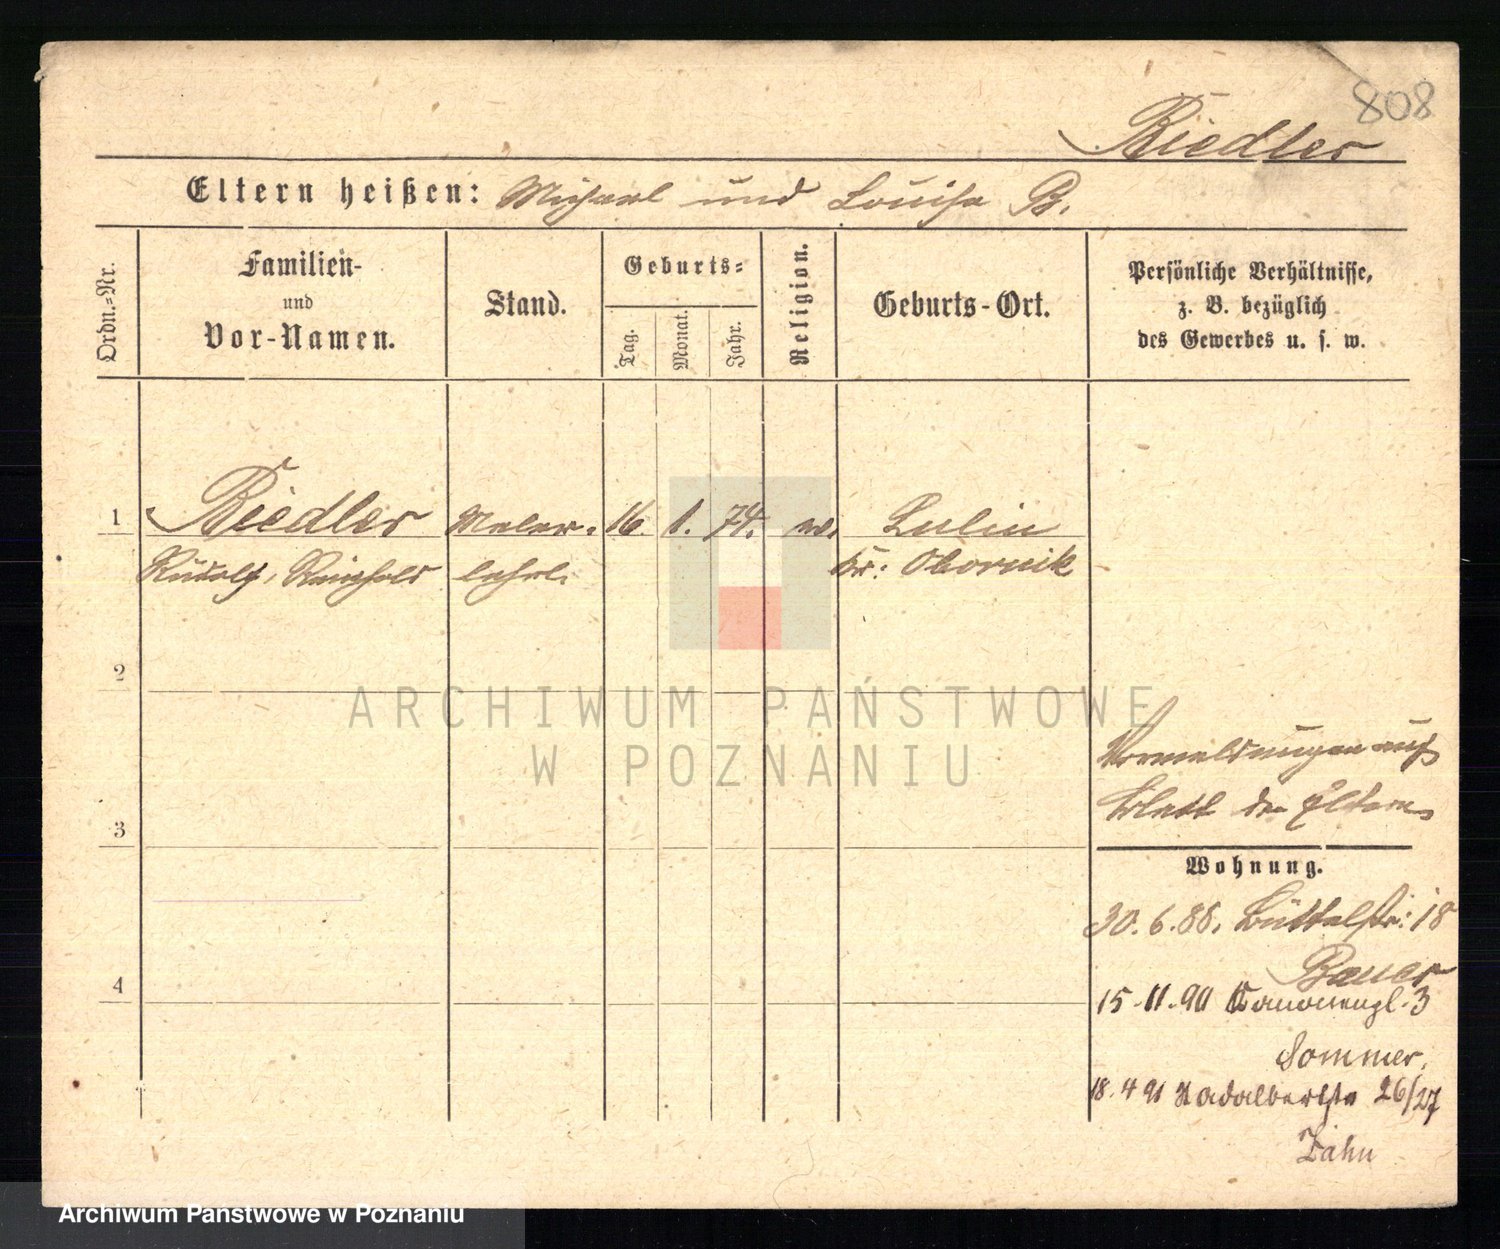 808
Riedler
Eltern heißen: Michael und Louise R.
Ordn.-Nr.
Familien-
und
Vor-Namen.
Stand.
Geburts-
Tag.
Monat.
Jahr.
Religion.
Geburts-Ort.
Persönliche Verhältnisse,
z. B. bezüglich
des Gewerbes u. s. w.
1 Riedler Maler- 16. 1. 74. ev. Lulin
Rudolf, Reinhold lehrl. Kr: Obornik
2
3
4
Vormeldungen auf
Blatt der Eltern
Wohnung.
30.6.88. Büttelstr: 18
Bauer
15-11-90 Kanonenpl. 3
Sommer.
18.4 91 Wadalbertstr 26/27
Zahn
ARCHIWUM PAŃSTWOWE
W POZNANIU
Archiwum Państwowe w Poznaniu